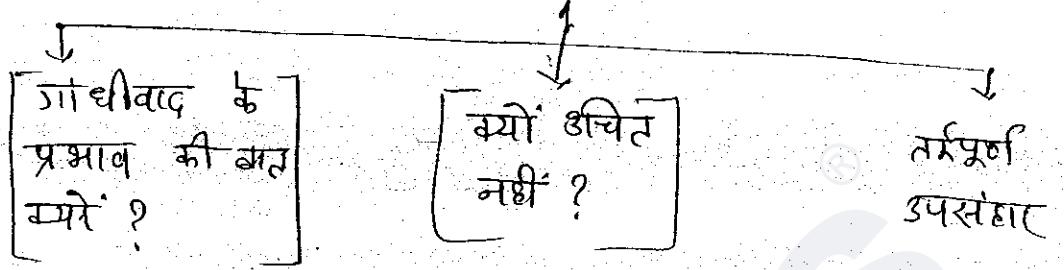 गांधीवाद के
प्रभाव की बात
क्यों ?
क्यों उचित
नहीं ?
तर्कपूर्ण
उपसंहार